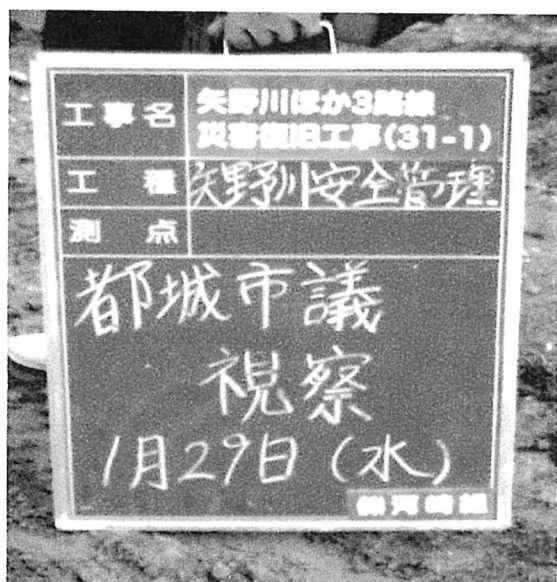 工事名
矢野川ほか3路線
災害復旧工事(31-1)
工種 矢野川 安全管理
測点
都城市議
視察
1月29日(水)
㈱河崎組